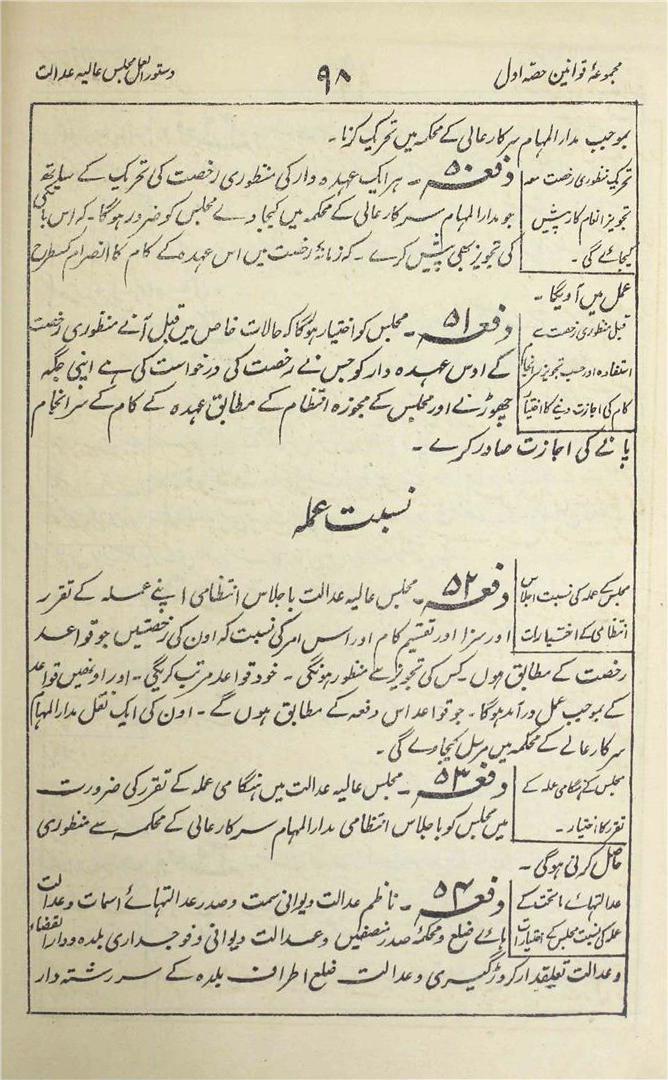 مجموعۂ قوانین حصہ اول
۹۸
دستور العمل مجلس عالیہ عدالت
بموجب مدار المہام سرکار عالی کے محکمہ میں تحریک کرنا۔
تحریک منظوری رخصت معہ
تجویز انتظام کار پیش
کیجائے گی۔
دفعہ ۵۰۔ ہر ایک عہدہ دار کی منظوری رخصت کی تحریک کے ساتھ
جو مدار المہام سرکار عالی کے محکمہ میں کیجاوے مجلس کو ضرور ہوگا۔ کہ اس بات کی
کی تجویز بھی پیش کرے۔ کہ زمانۂ رخصت میں اس عہدہ کے کام کا انصرام کسطرح
عمل میں آویگا۔
قبل منظوری رخصت سے
استفادہ اور حسب تجویز سرانجام
کام کی اجازت دینے کا اختیار
دفعہ ۵۱۔ مجلس کو اختیار ہوگا کہ حالات خاص میں قبل آنے منظوری رخصت
کے اوس عہدہ دار کو جس نے رخصت کی درخواست کی ہے اپنی جگہ
چھوڑنے اور مجلس کے مجوزہ انتظام کے مطابق عہدہ کے کام کے سرانجام
پانے کی اجازت صادر کرے۔
نسبت عملہ
مجلس کے عملہ کی نسبت اجلاس
انتظامی کے اختیارات
دفعہ ۵۲۔ مجلس عالیہ عدالت باجلاس انتظامی اپنے عملہ کے تقرر
اور سزا اور تقسیم کام اور اس امر کی نسبت کہ اون کی رخصتیں جو قواعد
رخصت کے مطابق ہوں کس کی تجویز سے منظور ہونگی۔ خود قواعد مرتب کریگی۔ اور اونھیں قواعد
کے بموجب عمل درآمد ہوگا۔ جو قواعد اس دفعہ کے مطابق ہوں گے۔ اون کی ایک نقل مدار المہام
سرکار عالی کے محکمہ میں مرسل کیجاوے گی۔
مجلس کے ہنگامی عملہ کے
تقرر کا اختیار۔
دفعہ ۵۳۔ مجلس عالیہ عدالت میں ہنگامی عملہ کے تقرر کی ضرورت
میں مجلس کو باجلاس انتظامی مدار المہام سرکار عالی کے محکمہ سے منظوری
حاصل کرنی ہوگی۔
عدالتہائے ماتحت کے
عملہ کی نسبت مجلس کے اختیارات
دفعہ ۵۴۔ ناظم عدالت دیوانی سمت و صدر عدالتہائے اسمات و عدالت
ہائے ضلع و محکمۂ صدر منصفین و عدالت دیوانی و فوجداری بلدہ و دارالقضاء
و عدالت تعلیقدار کروڑگیری و عدالت ضلع اطراف بلدہ کے سررشتہ دار